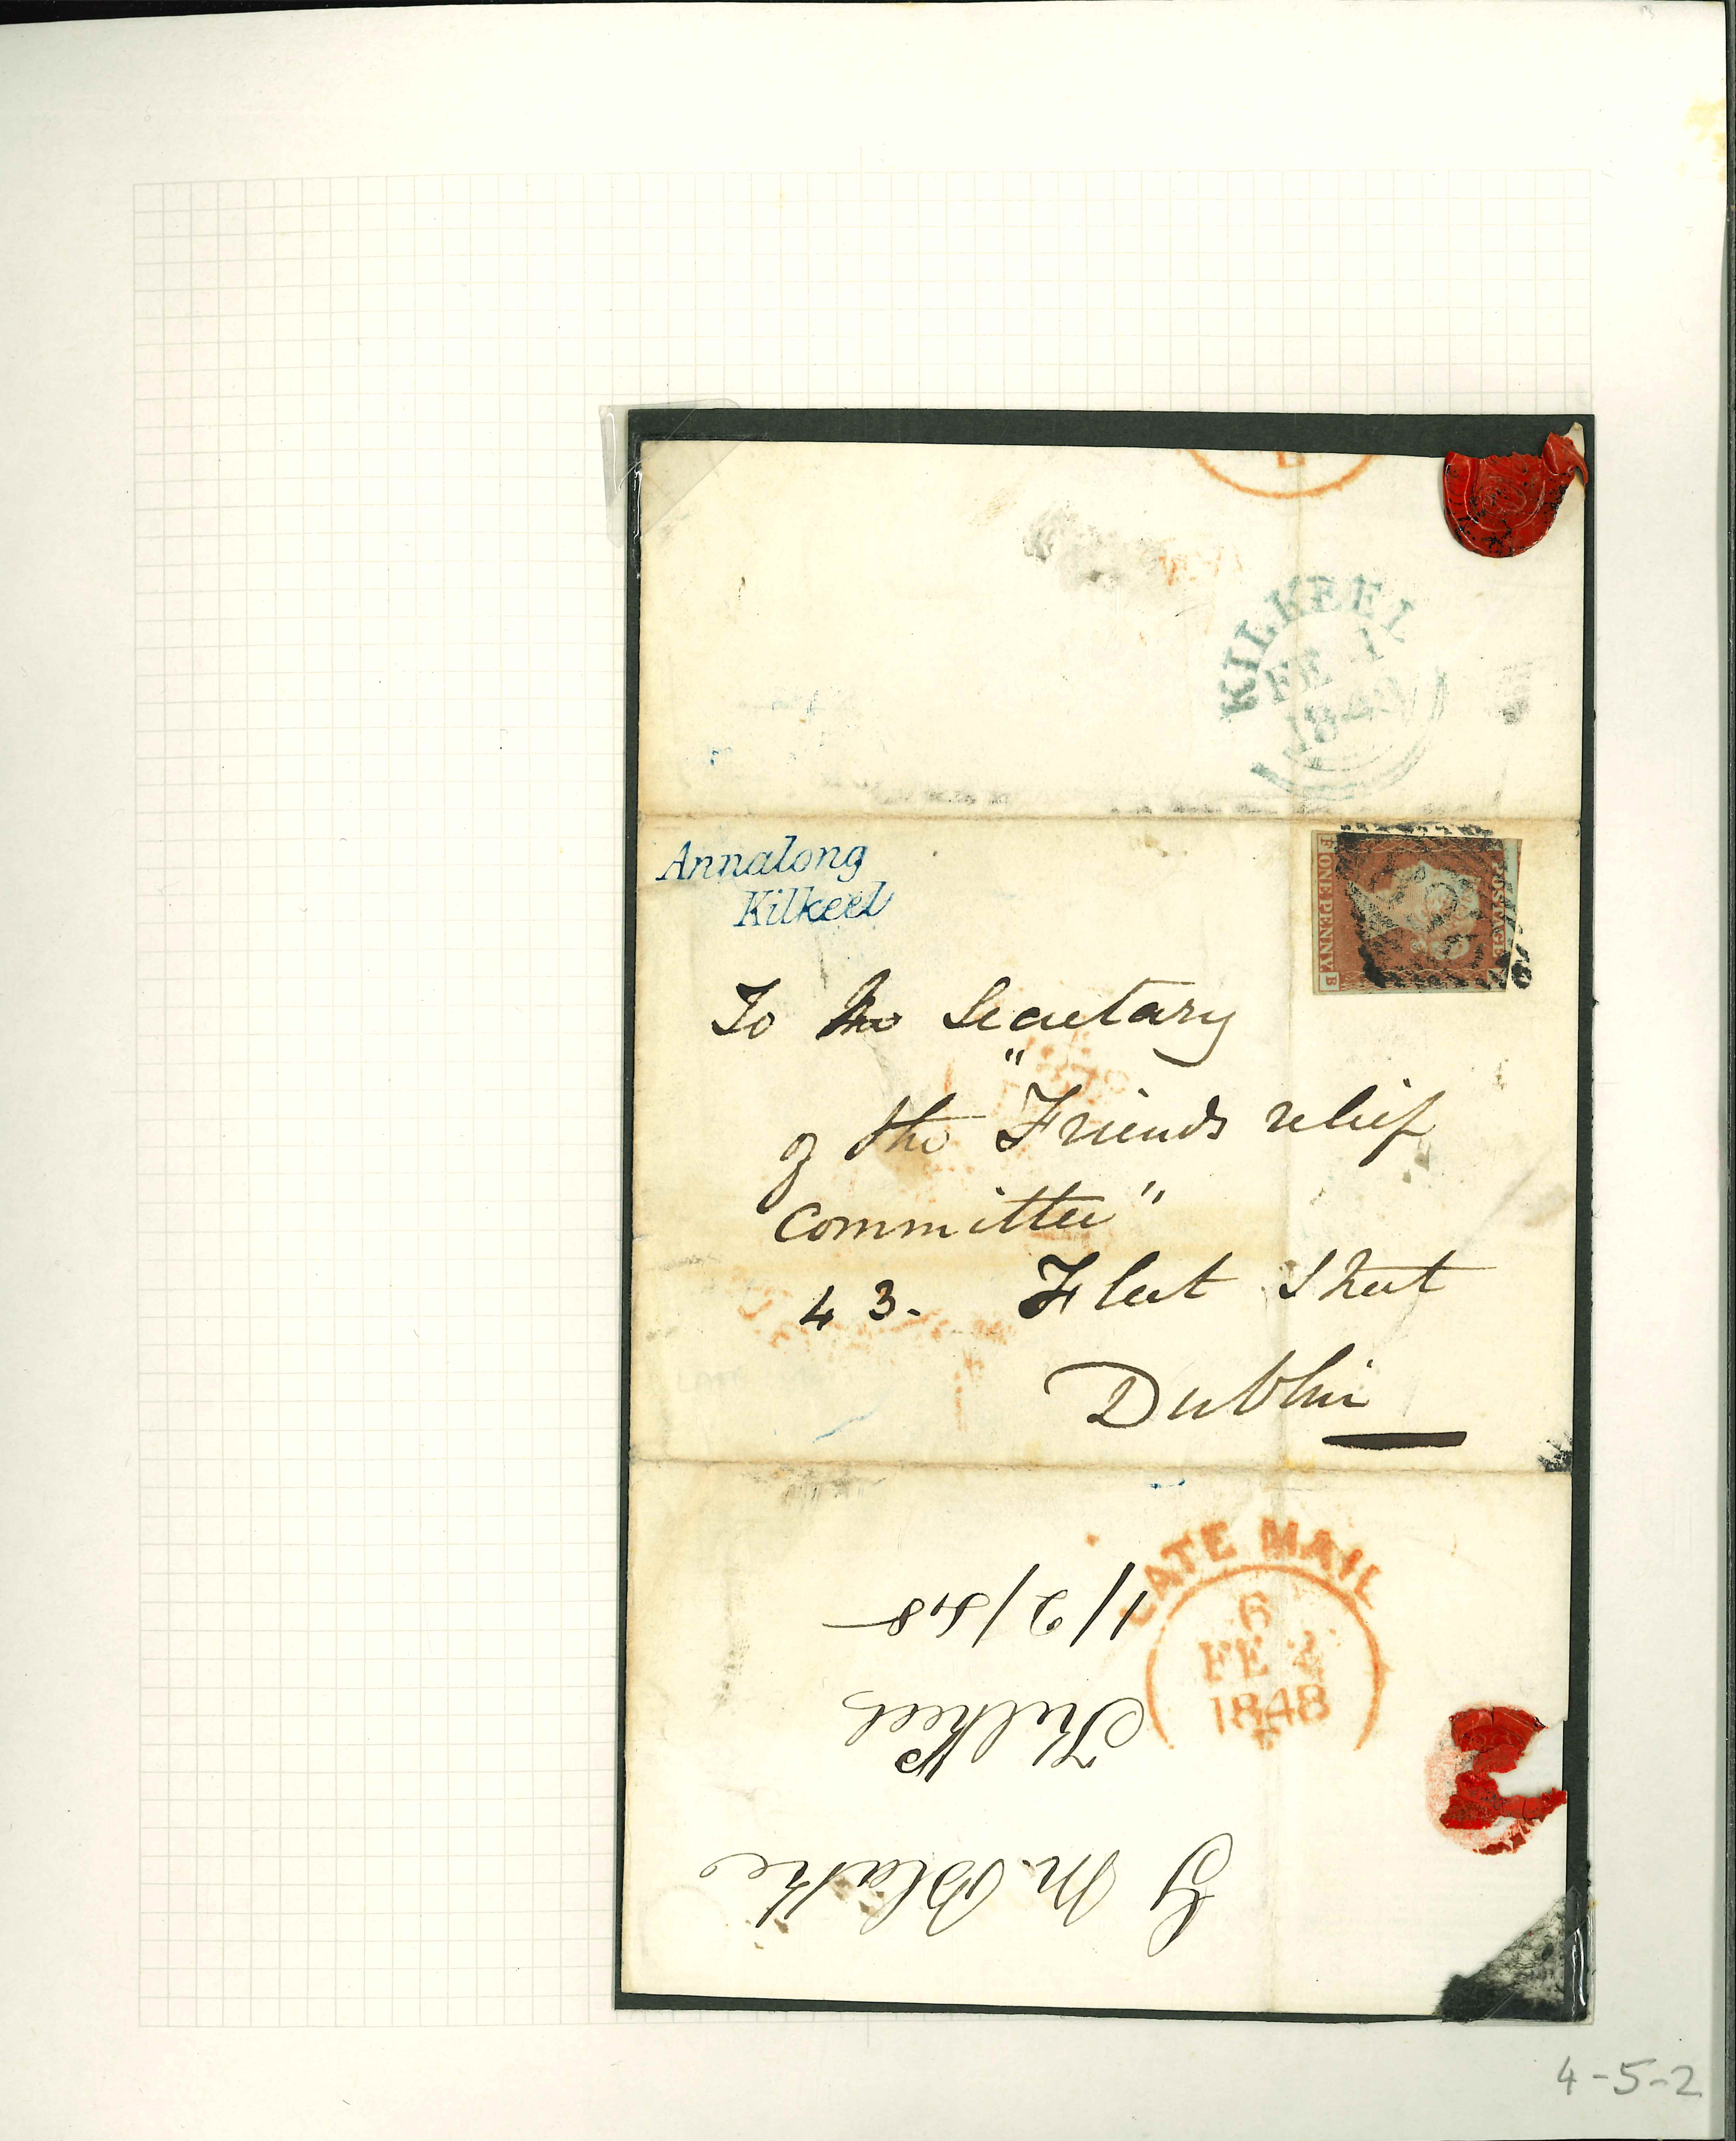 KILKEEL
FE 1
1848
Annalong
Kilkeel
POSTAGE
F ONE PENNY. B
To the Secretary
of the "Friends relief
committee"
43. Fleet Street
Dublin
LATE MAIL
6
FE 2
1848
G M. Blake
Kilkeel
1/2/48
4-5-2